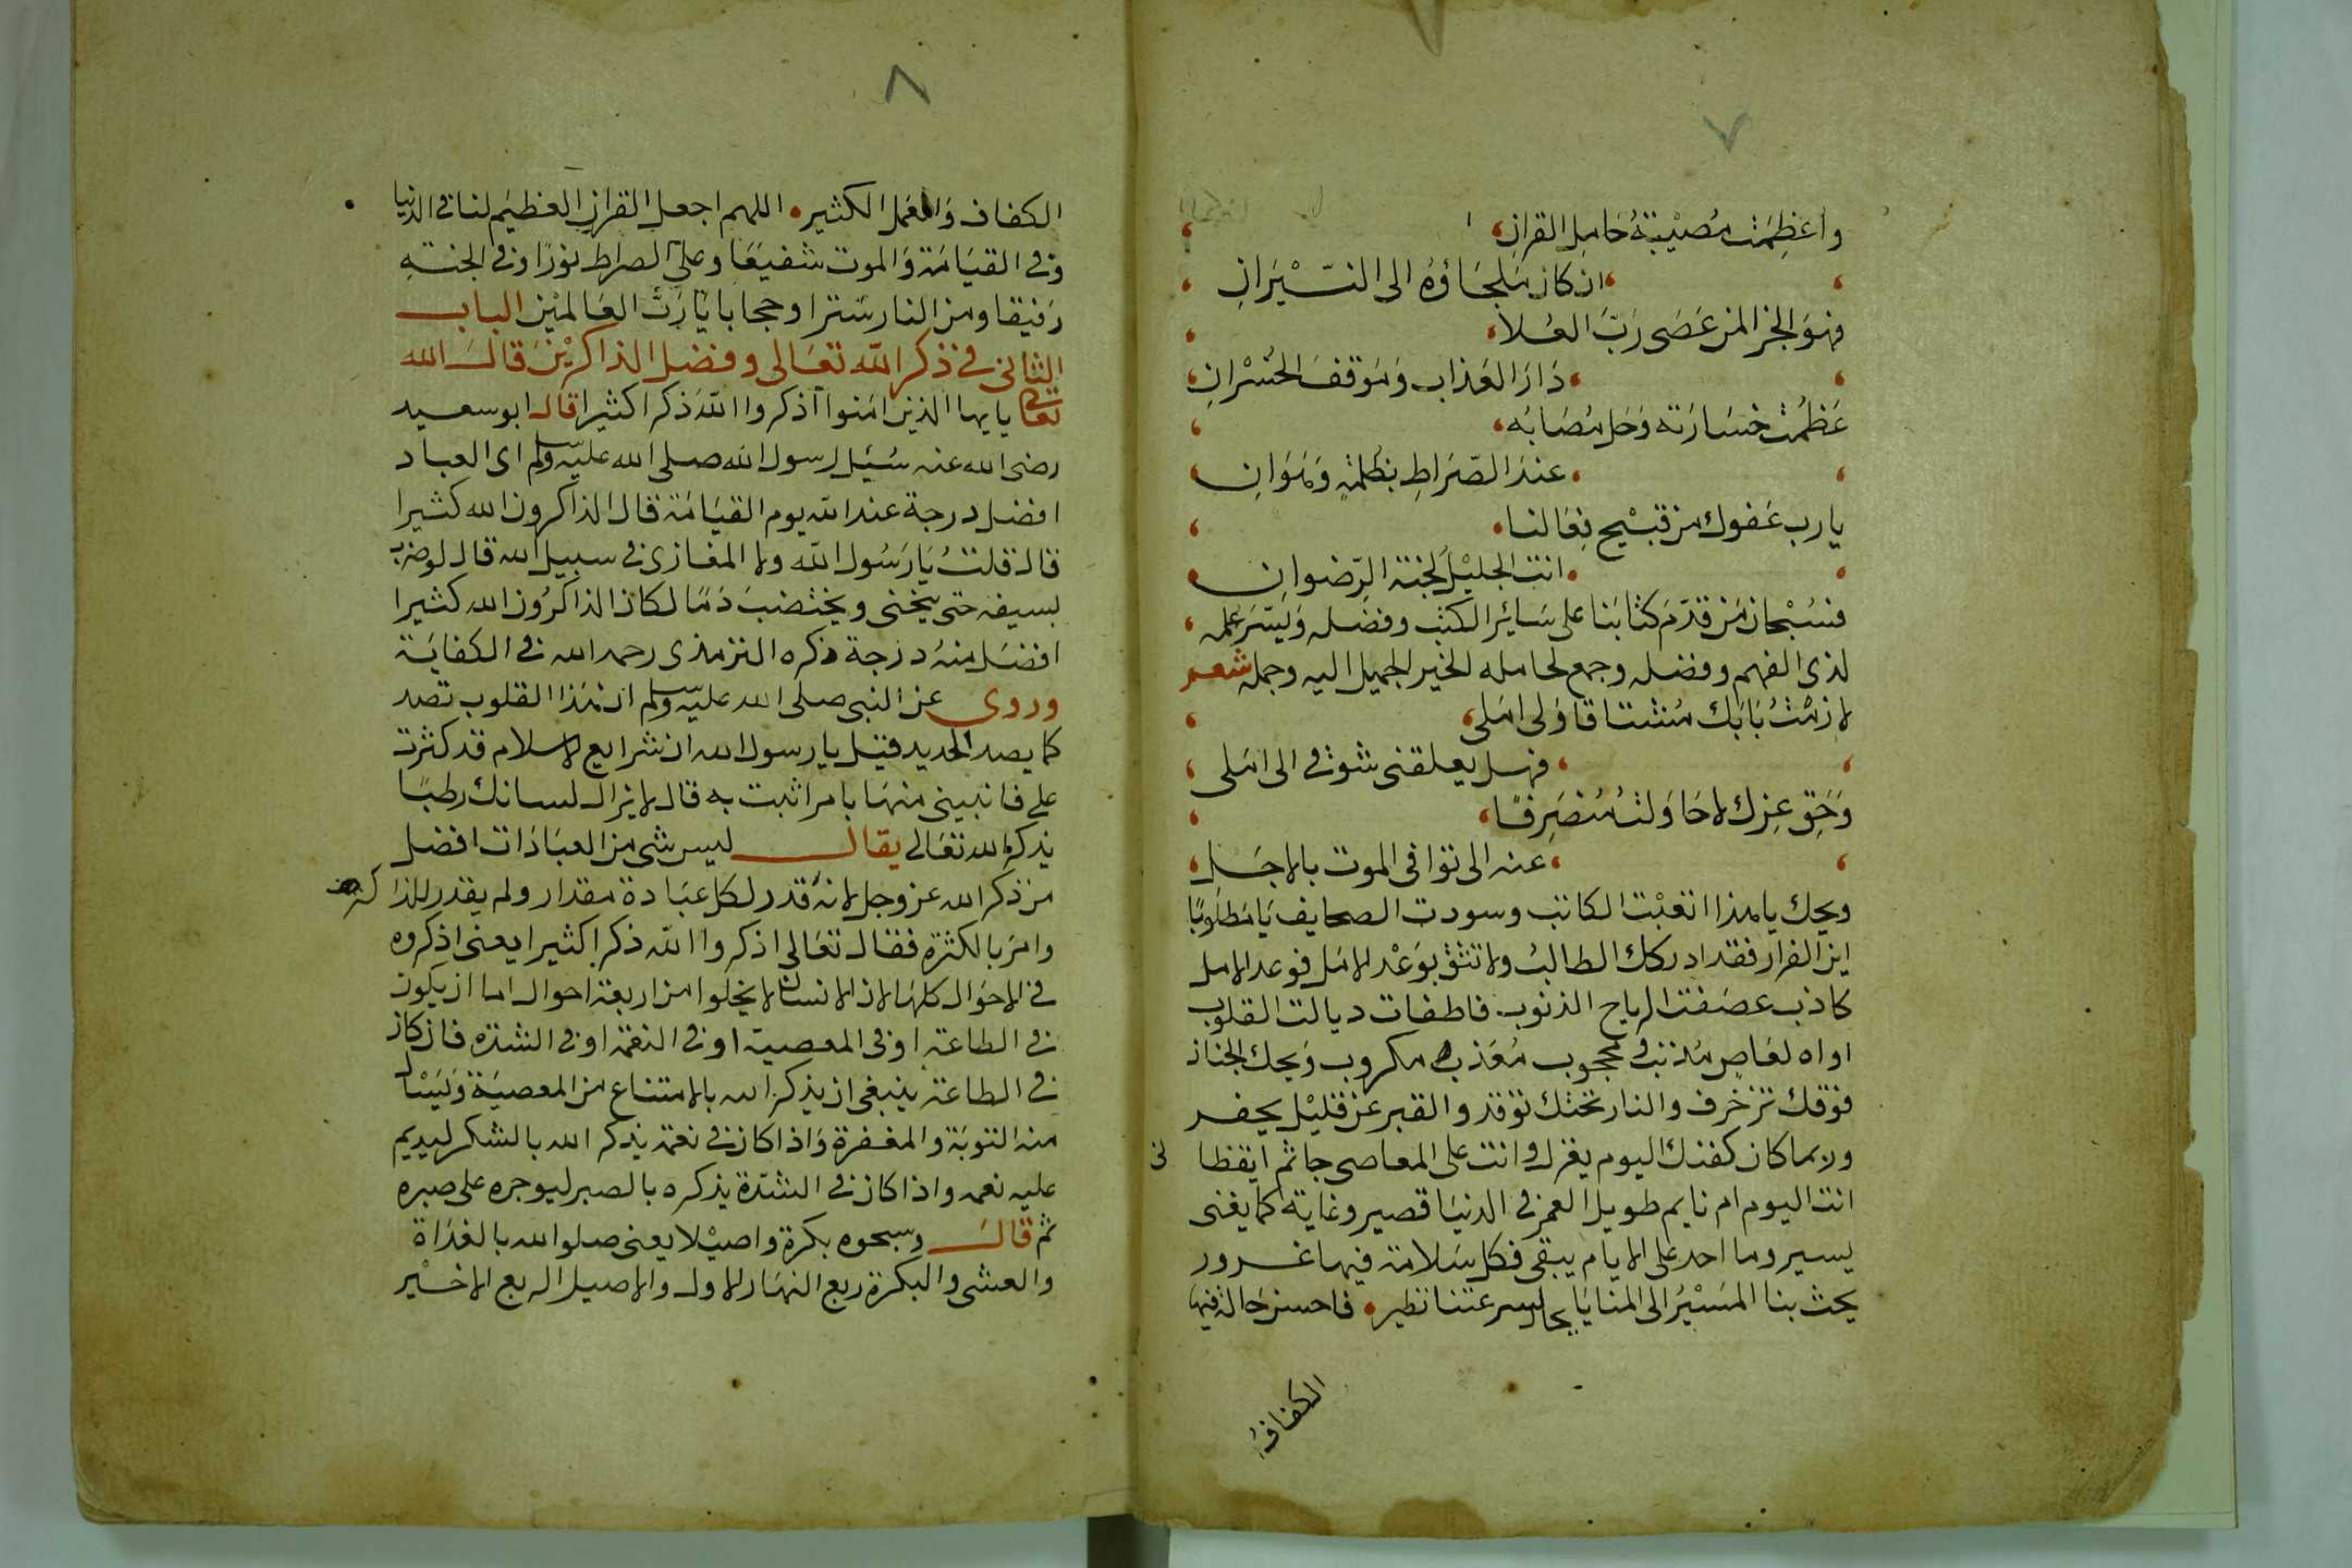 ٧
واعظمت مصيبة حامل القران
ان كان ملجاؤه الى النيران
فهو الخزا لمن عصى رب العلا
دار العذاب وموقف الخسران
عظمت خسارته وجل مصابه
عند الصراط بظلمة وهوان
يا رب عفوك من قبيح فعالنا
انت الجليل لجنة الرضوان
فسبحان من قدم كتابنا على سائر الكتب وفضله ويسر علمه
لذى الفهم وفضله وجمع لحامله الخير الجميل اليه وجمله شعر
لازمت بابك مشتاقا ولى امل
فهل يعلقنى شوقى الى املى
وحق عزك لا حاولت منصرفا
عنه الى توافى الموت بالاجل
ويحك يا هذا اتعبت الكاتب وسودت الصحايف يا مطلوبا
اين الفرار فقد ادركك الطالب ولا تثق بوعد الامل فوعد الامل
كاذب عصفت الرياح الذنوب فاطفات ديالت القلوب
اواه لعاص مذنب محجوب معذب مكروب ويحك الجنان
فوقك تزخرف والنار تحتك توقد والقبر عن قليل يحفر
وربما كان كفنك اليوم يغزل وانت على المعاصى جاثم ايقظا نى
انت اليوم ام نايم طويل العمر فى الدنيا قصير وغاية كما يغنى
يسير وما احد على الايام يبقى فكل سلامة فيها غرور
يحث بنا المسير الى المنايا بحال سرعتنا نطير فاحسن حالة فيها
الكفاف
٨
الكفاف والعمل الكثير اللهم اجعل القران العظيم لنا فى الدنيا
وفى القيامة والموت شفيعا وعلى الصراط نورا وفى الجنة
رفيقا ومن النار سترا وحجابا يا رب العالمين الباب
الثانى فى ذكر الله تعالى وفضل الذاكرين قال الله
تعالى يايها الذين امنوا اذكروا الله ذكرا كثيرا قال ابو سعيد
رضى الله عنه سئل رسول الله صلى الله عليه وسلم اى العباد
افضل درجة عند الله يوم القيامة قال الذاكرون الله كثيرا
قال قلت يا رسول الله ولا المغازى فى سبيل الله قال لو ضرب
بسيفه حتى يخنى ويختضب دما لكان الذاكرون الله كثيرا
افضل منه درجة ذكره الترمذى رحمه الله فى الكفاية
وروى عن النبى صلى الله عليه وسلم ان هذا القلوب تصد
كما يصد الحديد فقيل يا رسول الله ان شرايع الاسلام قد كثرت
على فانبينى منها بامر اثبت به قال لا يزال لسانك رطبا
بذكر الله تعالى يقال ليس شى من العبادات افضل
من ذكر الله عز وجل لانه قدر لكل عبادة مقدار ولم يقدر للذاكرين
وامر بالكثرة فقال تعالى اذكروا الله ذكرا كثيرا يعنى اذكروه
فى الاحوال كلها لان الانسان لا يخلوا من اربعة احوال اما ان يكون
فى الطاعة او فى المعصية او فى النعمة او فى الشدة فان كان
فى الطاعة ينبغى ان يذكر الله بالامتناع من المعصية ويسال
منه التوبة والمغفرة واذا كان فى نعمة يذكر الله بالشكر ليديم
عليه نعمه واذا كان فى الشدة يذكره بالصبر ليوجره على صبره
ثم قال وسبحوه بكرة واصيلا يعنى صلوا لله بالغداة
والعشى والبكرة ربع النهار الاول والاصيل الربع الاخير